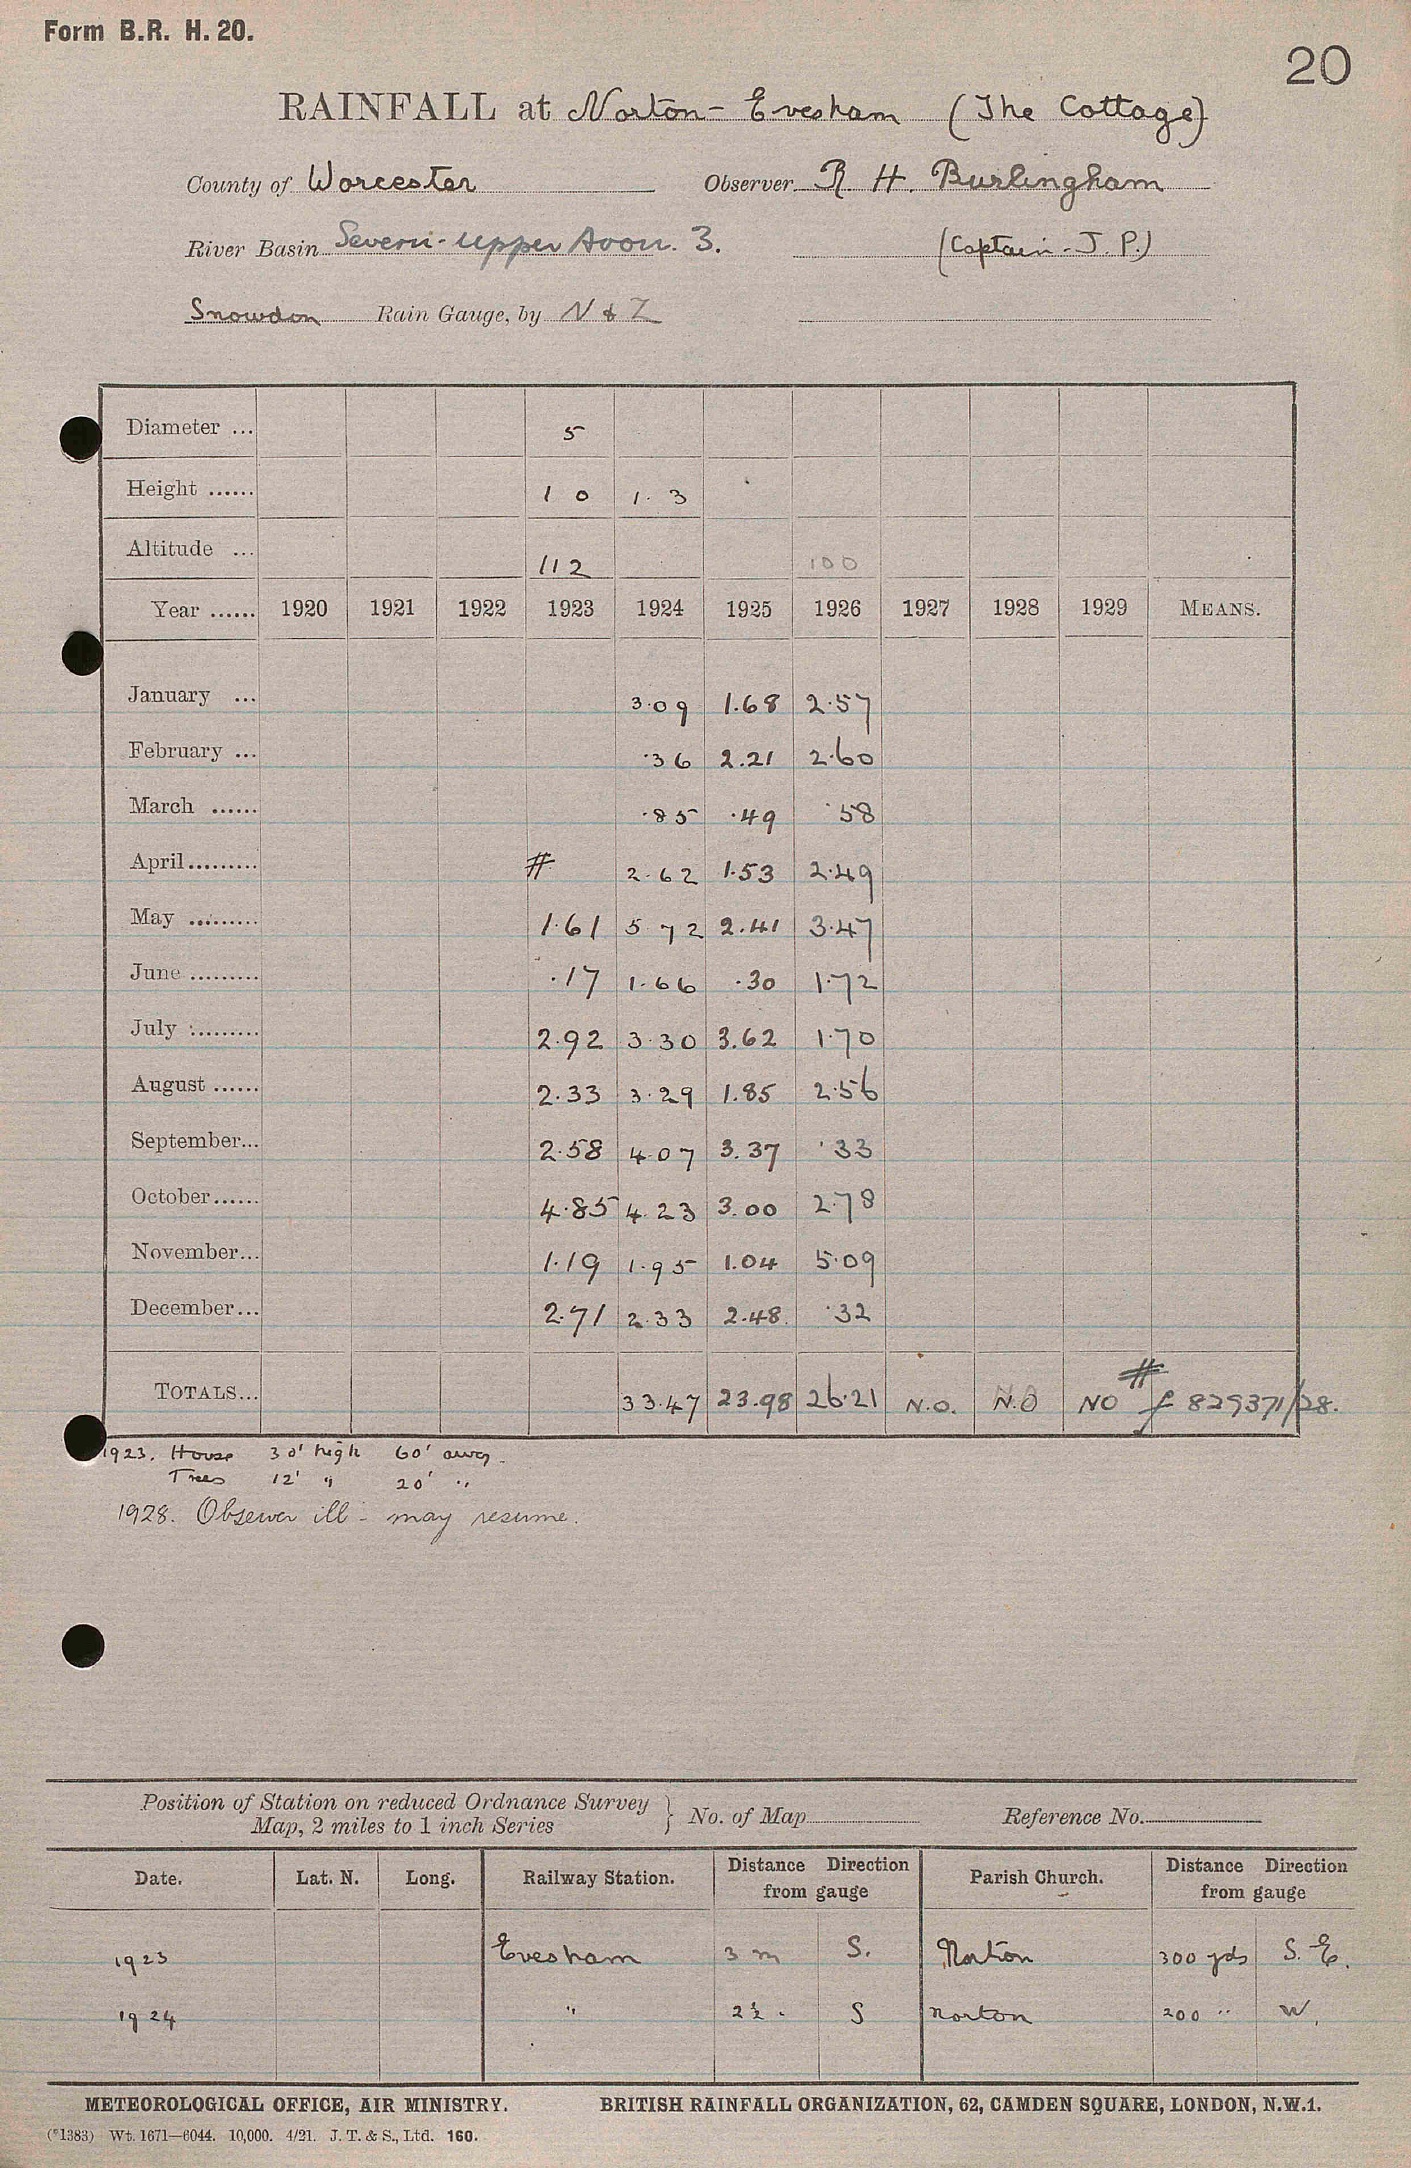 Form B.R. H. 20.
20
RAINFALL at Norton - Evesham (The Cottage)
County of Worcester Observer R. H. Burlingham
River Basin Severn - Upper Avon. 3. (Captain - J. P.)
Snowdon Rain Gauge, by N & Z
Diameter ... 5
Height ...... 1 0 1. 3
Altitude ... 112 100
Year ...... 1920 1921 1922 1923 1924 1925 1926 1927 1928 1929 MEANS.
January ... 3.09 1.68 2.57
February ... .36 2.21 2.60
March ...... .85 .49 .58
April......... # 2.62 1.53 2.49
May ......... 1.61 5 72 2.41 3.47
June ......... .17 1.66 .30 1.72
July ......... 2.92 3.30 3.62 1.70
August ...... 2.33 3.29 1.85 2.56
September... 2.58 4.07 3.37 .33
October...... 4.85 4.23 3.00 2.78
November... 1.19 1.95 1.04 5.09
December... 2.71 2.33 2.48 .32
TOTALS... 33.47 23.98 26.21 N.O. N.O NO # f 829371/28.
1923. House 30' high 60' away.
Trees 12' " 20' "
1928. Observer ill - may resume.
Position of Station on reduced Ordnance Survey
Map, 2 miles to 1 inch Series } No. of Map Reference No.
Date. Lat. N. Long. Railway Station. Distance Direction from gauge Parish Church. Distance Direction from gauge
1923 Evesham 3 m S. Norton 300 yds S. E.
1924 " 2½ " S Norton 200 " W.
METEOROLOGICAL OFFICE, AIR MINISTRY. BRITISH RAINFALL ORGANIZATION, 62, CAMDEN SQUARE, LONDON, N.W.1.
(*1383) Wt. 1671—6044. 10,000. 4/21. J. T. & S., Ltd. 160.